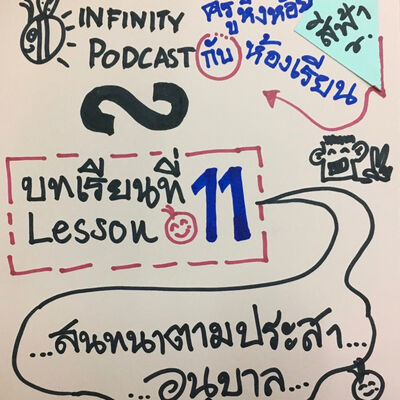 INFINITY
PODCAST
ครูหิ่งห้อย
กับ ห้องเรียน
สีฟ้า
บทเรียนที่ 11
Lesson
...สนทนาตามประสา...
...อนุบาล...